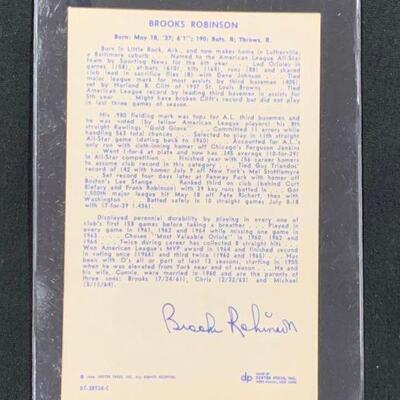 BROOKS ROBINSON
Born: May 18, '37; 6'1"; 190; Bats, R; Throws, R.
Born in Little Rock, Ark., and now makes home in Lutherville,
a Baltimore suburb . . . Named to the American League All-Star
team by Sporting News for the 6th year . . . Led Orioles in
games (158), at-bats (610), hits (164), runs (88) and shared
club lead in sacrifice flies (6) with Dave Johnson . . . Tied
major league mark for most assists by third baseman (405)
set by Harland B. Clift of 1937 St. Louis Browns . . . Tied
American League record by leading third basemen in assists for
5th year . . . Might have broken Clift's record but did not play
in last three games of season.
His .980 fielding mark was tops for A.L. third basemen and
he was voted (by fellow American League players) as the
8th straight Rawlings "Gold Glove" . . . Committed 11 errors while
handling 563 total chances . . . Selected to play in 11th straight
All-Star game (dating back to 1960) . . . Accounted for A.L.'s
only run with sixth-inning homer off Chicago's Ferguson Jenkins
. . . Went 1-for-6 at plate and now has .345 average (10-for-29)
in All-Star competition . . . Finished year with 156 career homers
to assume club record in this category . . . Tied Gus Triandos'
record of 142 with homer July 9 off New York's Mel Stottlemyre
. . . Set record four days later at Fenway Park with homer off
Boston's Lee Stange . . . Ranked third on club (behind Curt
Blefary and Frank Robinson) with 39 key runs batted in . . . Got
1,500th major league hit May 18 off Pete Richert, then with
Washington . . . Batted safely in 10 straight games July 8-18
with 17-for-39 (.436).
Displayed perennial durability by playing in every one of
club's first 158 games before taking a breather . . . Played in
every game in 1961, 1962, and 1964 while missing one in
1963 . . . Chosen "Most Valuable Oriole" in 1960, 1962 and
1964 . . . Twice during career has collected 8 straight hits . . .
Won American League's MVP award in 1964 and finished second
in voting once (1966) and third twice (1960 and 1965) . . . Has
been with O's all or part of last 13 seasons, starting in 1955
when he was elevated from York near end of season . . . He and
his wife, Connie, were married in 1960 and are the parents of
three sons: Brooks (7/24/61), Chris (2/22/63) and Michael
(3/11/64).
Brooks Robinson
DEXTER PRESS, INC. ALL RIGHTS RESERVED
dp
MADE BY
DEXTER PRESS, INC.
WEST NYACK, NEW YORK
DT-38124-C